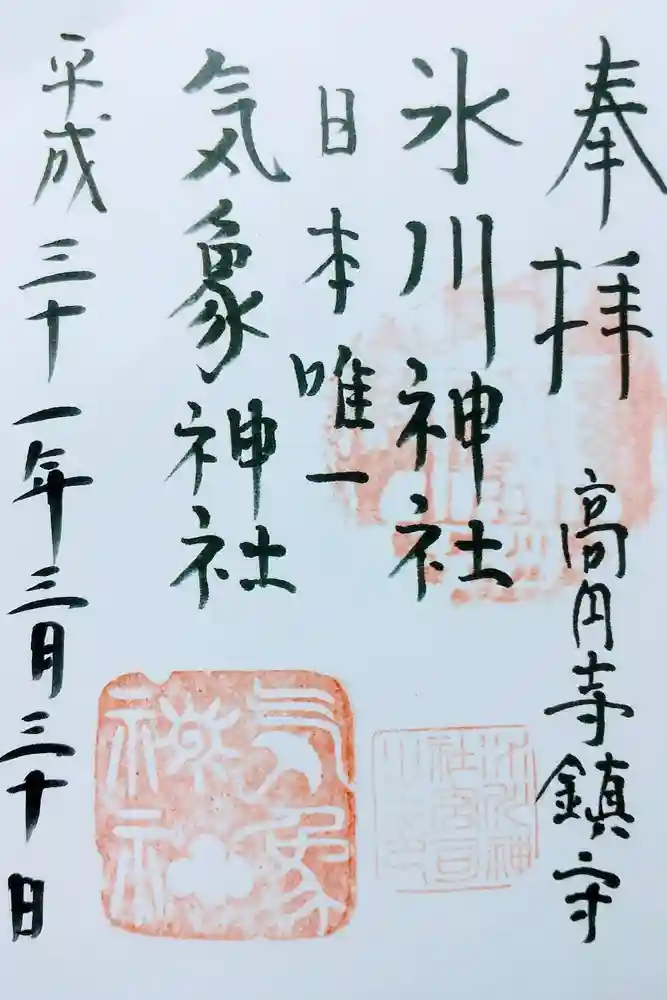 奉拝
高円寺鎮守
氷川神社
日本唯一
気象神社
平成三十一年三月三十日
気象神社